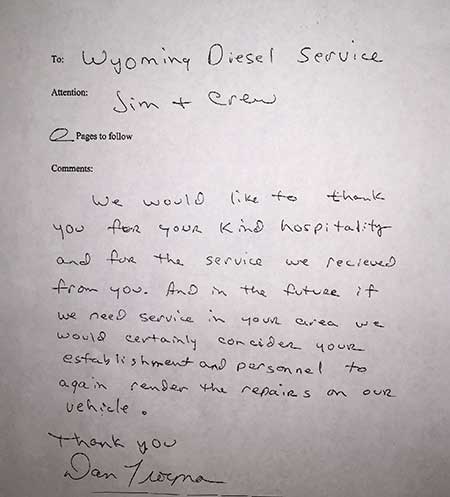 To: Wyoming Diesel Service
Attention: Jim + Crew
0 Pages to follow
Comments:
We would like to thank
you for your kind hospitality
and for the service we recieved
from you. And in the future if
we need service in your area we
would certainly concider your
establishment and personnel to
again render the repairs on our
vehicle.
Thank you
Dan